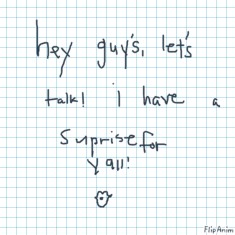 hey guy's, let's
talk! i have a
suprise for
y'all!
FlipAnim